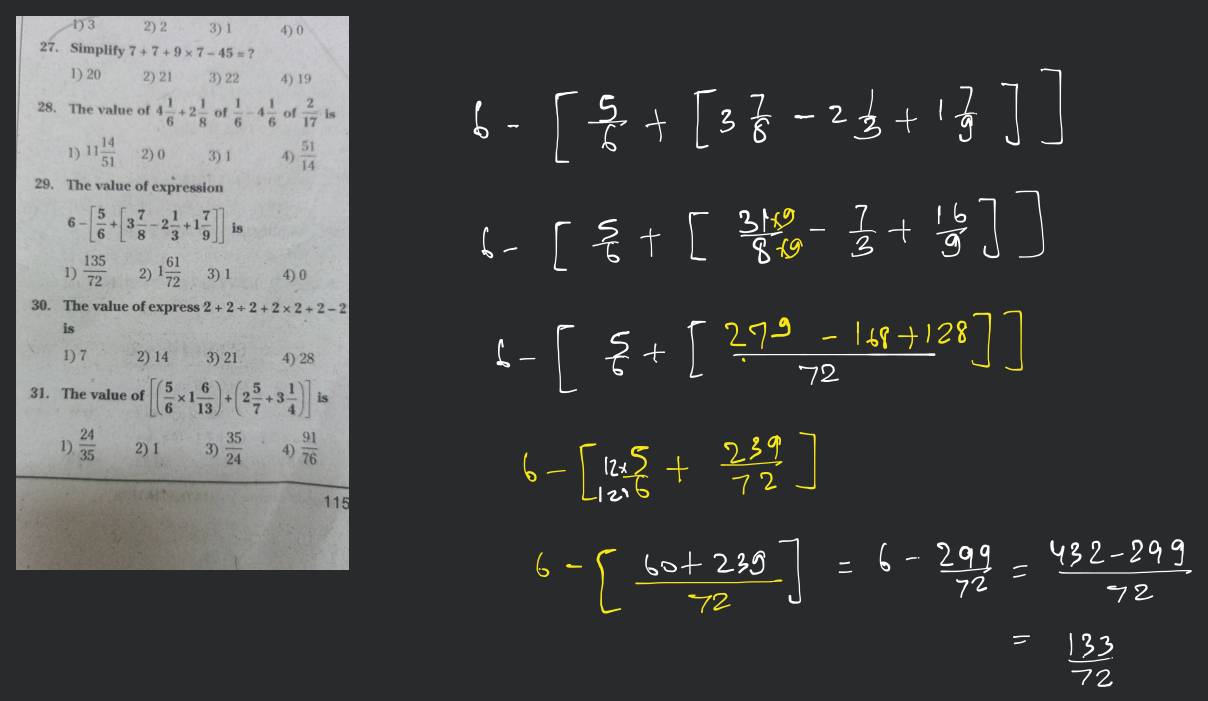 1) 3 2) 2 3) 1 4) 0
27. Simplify 7 + 7 + 9 × 7 – 45 = ?
1) 20 2) 21 3) 22 4) 19
28. The value of 4 1/6 + 2 1/8 of 1/6 – 4 1/6 of 2/17 is
1) 11 14/51 2) 0 3) 1 4) 51/14
29. The value of expression
6 – [5/6 + [3 7/8 – 2 1/3 + 1 7/9]] is
1) 135/72 2) 1 61/72 3) 1 4) 0
30. The value of express 2 + 2 ÷ 2 + 2 × 2 + 2 – 2
is
1) 7 2) 14 3) 21 4) 28
31. The value of [(5/6 × 1 6/13) + (2 5/7 + 3 1/4)] is
1) 24/35 2) 1 3) 35/24 4) 91/76
115
6 - [5/6 + [3 7/8 - 2 1/3 + 1 7/9]]
6 - [5/6 + [31×9/8×9 - 7/3 + 16/9]]
6 - [5/6 + [279 - 168 + 128/72]]
6 - [12×5/12×6 + 239/72]
6 - [60 + 239/72] = 6 - 299/72 = 432 - 299/72
= 133/72